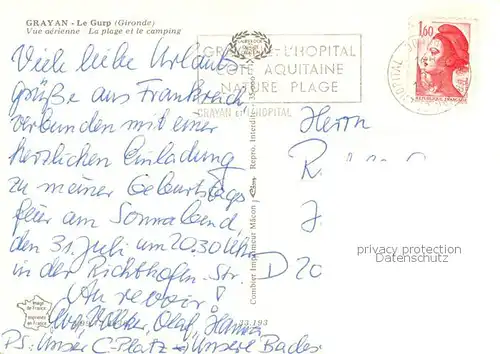 GRAYAN - Le Gurp (Gironde)
Vue aérienne   La plage et le camping
GRAYAN-L'HOPITAL
COTE AQUITAINE
NATURE PLAGE
GRAYAN et L'HOPITAL
1,60
REPUBLIQUE FRANÇAISE
Viele liebe Urlaubs
grüße aus Frankreich
verbunden mit einer
herzlichen Einladung
zu meiner Geburtstags
feier am Sonnabend,
den 31. Juli um 20.30 Uhr
in der Richthofen-Str.
Au revoir!
Olaf,
PS: Unser C-Platz → Unsere Bade
Combier Imprimeur Mâcon
Herrn
R.
J.
D 20
privacy protection
Daten Schutz
33.193